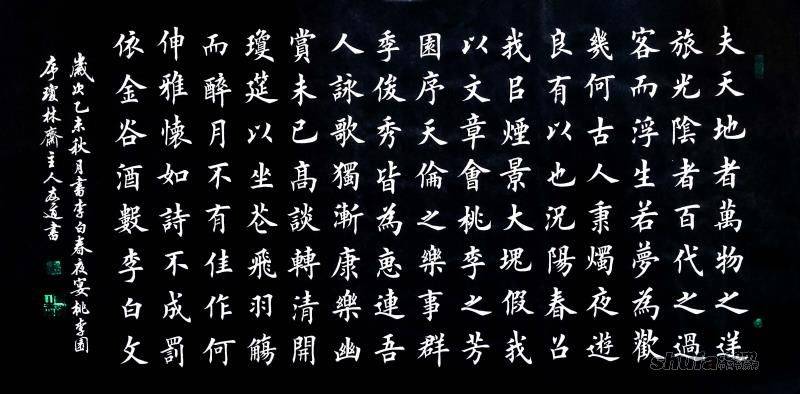 夫天地者萬物之逆
旅光陰者百代之過
客而浮生若夢為歡
幾何古人秉燭夜遊
良有以也況陽春召
我以煙景大塊假我
以文章會桃李之芳
園序天倫之樂事群
季俊秀皆為惠連吾
人詠歌獨漸康樂幽
賞未已高談轉清開
瓊莚以坐花飛羽觴
而醉月不有佳作何
伸雅懷如詩不成罰
依金谷酒數李白文
歲次乙未秋月書李白春夜宴桃李園
序瓊林齋主人友道書